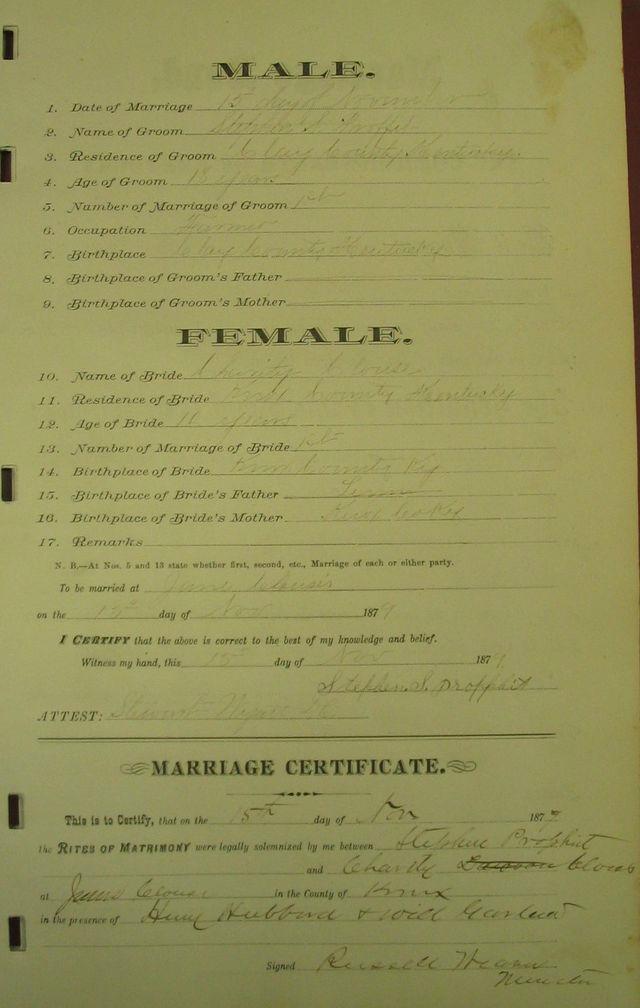 MALE.
1. Date of Marriage 15 day of November
2. Name of Groom
3. Residence of Groom Clay County Kentucky
4. Age of Groom 18 years
5. Number of Marriage of Groom 1st
6. Occupation Farmer
7. Birthplace Clay County Kentucky
8. Birthplace of Groom's Father
9. Birthplace of Groom's Mother
FEMALE.
10. Name of Bride Charity Clouse
11. Residence of Bride Knox County Kentucky
12. Age of Bride years
13. Number of Marriage of Bride 1st
14. Birthplace of Bride Knox County Ky
15. Birthplace of Bride's Father
16. Birthplace of Bride's Mother Knox Co Ky
17. Remarks
N. B.—At Nos. 5 and 13 state whether first, second, etc., Marriage of each or either party.
To be married at
on the 15th day of Nov 1879
I CERTIFY that the above is correct to the best of my knowledge and belief.
Witness my hand, this 15th day of Nov 1879.
Stephen. S. Propphit
ATTEST:
MARRIAGE CERTIFICATE.
This is to Certify, that on the 15th day of Nov 1879
the RITES OF MATRIMONY were legally solemnized by me between Stephen Prophit
and Charity Clous
at James Clouse in the County of Knox
in the presence of Henry Hubbard & Will Garland
Signed Russell